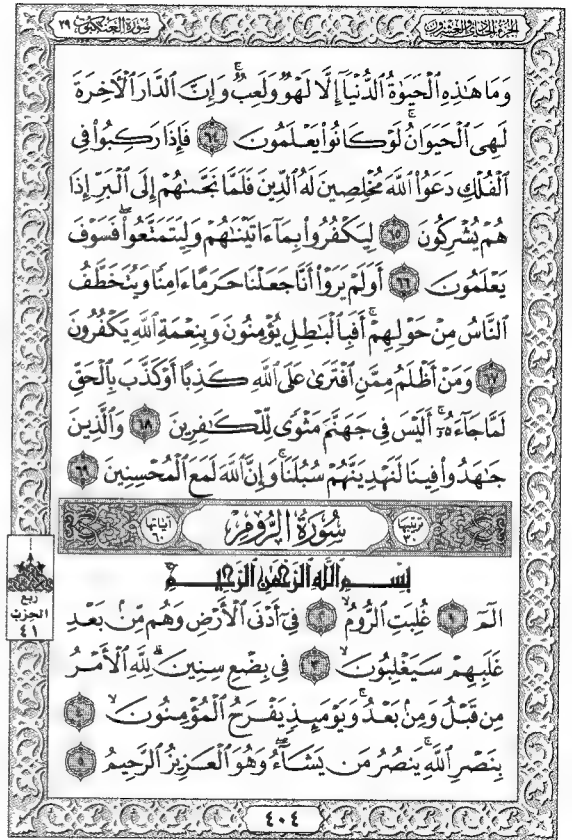 الجزء الحادي والعشرون
سورة العنكبوت ٢٩
وَمَا هَٰذِهِ ٱلْحَيَوٰةُ ٱلدُّنْيَآ إِلَّا لَهْوٌ وَلَعِبٌ ۚ وَإِنَّ ٱلدَّارَ ٱلْءَاخِرَةَ
لَهِىَ ٱلْحَيَوَانُ ۚ لَوْ كَانُوا۟ يَعْلَمُونَ ٦٤ فَإِذَا رَكِبُوا۟ فِى
ٱلْفُلْكِ دَعَوُا۟ ٱللَّهَ مُخْلِصِينَ لَهُ ٱلدِّينَ فَلَمَّا نَجَّىٰهُمْ إِلَى ٱلْبَرِّ إِذَا
هُمْ يُشْرِكُونَ ٦٥ لِيَكْفُرُوا۟ بِمَآ ءَاتَيْنَٰهُمْ وَلِيَتَمَتَّعُوا۟ ۖ فَسَوْفَ
يَعْلَمُونَ ٦٦ أَوَلَمْ يَرَوْا۟ أَنَّا جَعَلْنَا حَرَمًا ءَامِنًا وَيُتَخَطَّفُ
ٱلنَّاسُ مِنْ حَوْلِهِمْ ۚ أَفَبِٱلْبَٰطِلِ يُؤْمِنُونَ وَبِنِعْمَةِ ٱللَّهِ يَكْفُرُونَ
٦٧ وَمَنْ أَظْلَمُ مِمَّنِ ٱفْتَرَىٰ عَلَى ٱللَّهِ كَذِبًا أَوْ كَذَّبَ بِٱلْحَقِّ
لَمَّا جَآءَهُۥٓ ۚ أَلَيْسَ فِى جَهَنَّمَ مَثْوًى لِّلْكَٰفِرِينَ ٦٨ وَٱلَّذِينَ
جَٰهَدُوا۟ فِينَا لَنَهْدِيَنَّهُمْ سُبُلَنَا ۚ وَإِنَّ ٱللَّهَ لَمَعَ ٱلْمُحْسِنِينَ ٦٩
ترتيبها ٣٠ سُورَةُ الرُّومِ آياتها ٦٠
بِسْمِ ٱللَّهِ ٱلرَّحْمَٰنِ ٱلرَّحِيمِ
الٓمٓ ١ غُلِبَتِ ٱلرُّومُ ٢ فِىٓ أَدْنَى ٱلْأَرْضِ وَهُم مِّنۢ بَعْدِ
غَلَبِهِمْ سَيَغْلِبُونَ ٣ فِى بِضْعِ سِنِينَ ۗ لِلَّهِ ٱلْأَمْرُ
مِن قَبْلُ وَمِنۢ بَعْدُ ۚ وَيَوْمَئِذٍ يَفْرَحُ ٱلْمُؤْمِنُونَ ٤
بِنَصْرِ ٱللَّهِ ۚ يَنصُرُ مَن يَشَآءُ ۖ وَهُوَ ٱلْعَزِيزُ ٱلرَّحِيمُ ٥
ربع
الحزب
٤١
٤٠٤